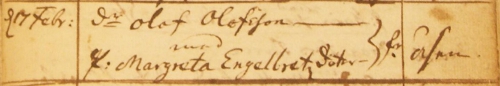 d 17 Febr: Dr Olof Olofsson
med
P: Margreta Engellrets doter fr Åsen